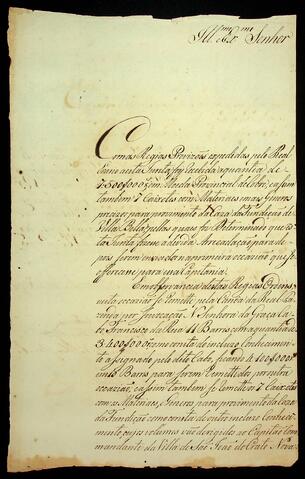 Ill.mo e Ex.mo Senhor
Com as Regias Provizoes expedidas pelo Real
Erario a esta Junta foi recebida a quantia de
7:500$000 em Moeda Provincial de Cobre, e assim
tambem 7 Caixotes com Materiaes mais generos
precizos para provimento da Caza da Fundição de
Villa Bella, pelas quaes foi Determinado que es
ta Junta fizesse a devida Arrecadação para de
pois serem
na primeira occazião que se
offerecesse para essa Capitania.
Em observancia destas Regias Ordens,
nesta occazião se remette pela
Senhora da Graça
Francisco da 11 Barris com a quantia de
3:400$000 como consta do incluzo Conhecimento
assignado pelo dito Cabo, ficando 4:100$000
Barris para serem remettidos por outra
occazião, e assim tambem se remettem 7 Caixotes
com os Materiaes, e generos para provimento da Caza
da Fundição como consta de outro incluzo Conheci-
mento cujos volumes vão dirigidos ao Capitão Com
mandante da Villa de São João do Crato Nova